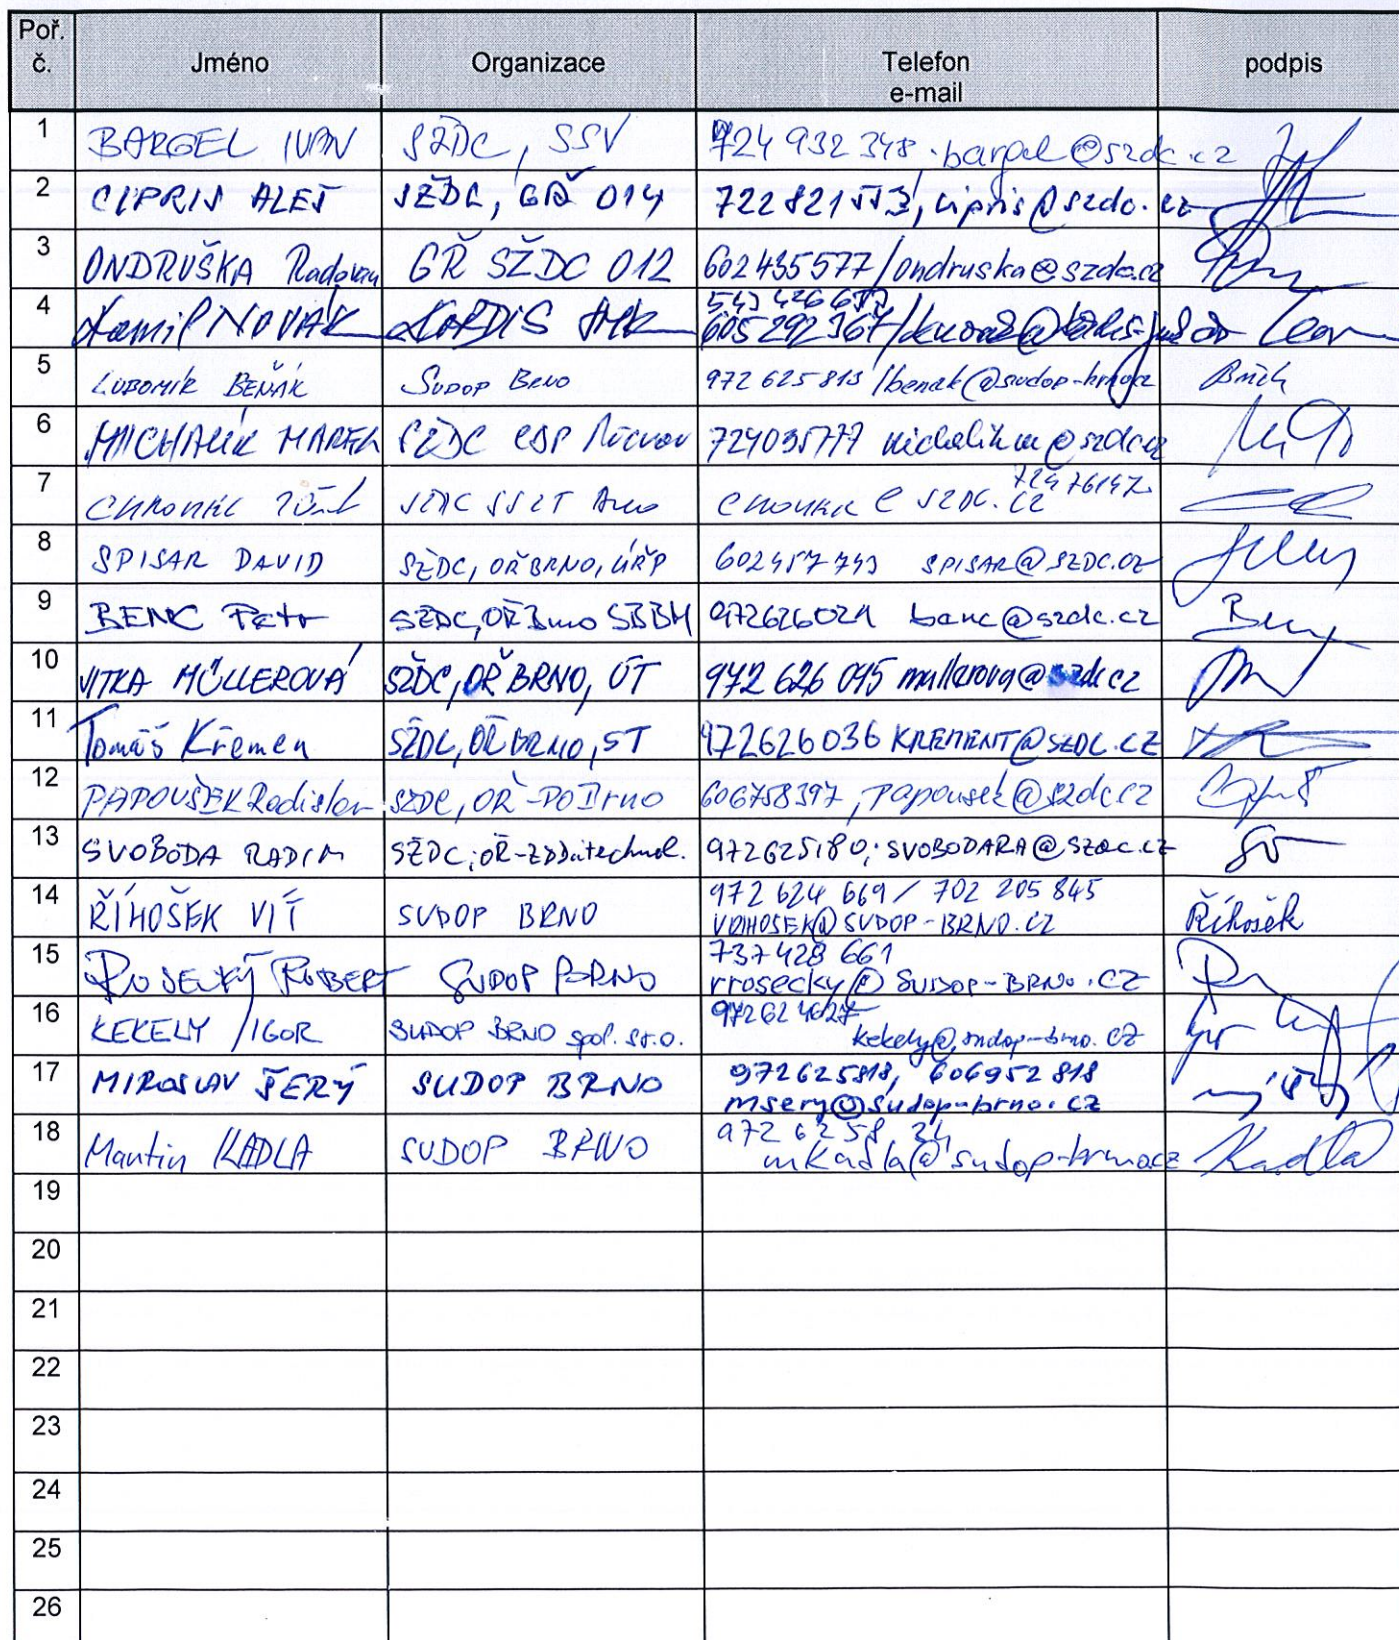 Poř. č. Jméno Organizace Telefon e-mail podpis
1 BARGEL IVAN SŽDC, SSV 724 932 348 bargel@szdc.cz
2 CIPRIS ALEŠ SŽDC, GŘ 014 722 821 553, cipris@szdc.cz
3 ONDRUŠKA Radovan GŘ SŽDC 012 602435577/ondruska@szdc.cz
4 Kamil NOVÁK KORDIS JMK 605 292 367/
5 LUBOMÍR BEŇÁK SUDOP BRNO 972 625 813 /benak@sudop-brno.cz
6 MICHALÍK MAREK SŽDC CDP 724035777 michalikm@szdc.cz
7 SŽDC SSZT
8 SPISAR DAVID SŽDC, OŘ BRNO, ÚŘP 602457743 SPISAR@SZDC.CZ
9 BENC Petr SŽDC, OŘ Brno SBBH 972626021 benc@szdc.cz
10 JITKA MÜLLEROVÁ SŽDC, OŘ BRNO, ÚT 972 626 045 mullerova@szdc.cz
11 Tomáš Křemen SŽDC, OŘ BRNO, ST 972626036 KREMENT@SZDC.CZ
12 PAPOUŠEK Radislav SŽDC, OŘ-PO Brno 606758397, papousek@szdc.cz
13 SVOBODA RADIM SŽDC; OŘ- 972625180; SVOBODARA@SZDC.CZ
14 ŘÍHOŠEK VÍT SUDOP BRNO 972 624 669 / 702 205 845 Říhošek
VRIHOSEK@SUDOP-BRNO.CZ
15 ROSECKÝ ROBERT SUDOP BRNO 737 428 661
rrosecky@SUDOP-BRNO.CZ
16 KEKELY IGOR SUDOP BRNO spol. s r.o. 972624627
kekely@sudop-brno.cz
17 MIROSLAV ŠERÝ SUDOP BRNO 972625818, 606952818
msery@sudop-brno.cz
18 Martin KADLA SUDOP BRNO 972 6258 24 Kadla
mkadla@sudop-brno.cz
19
20
21
22
23
24
25
26